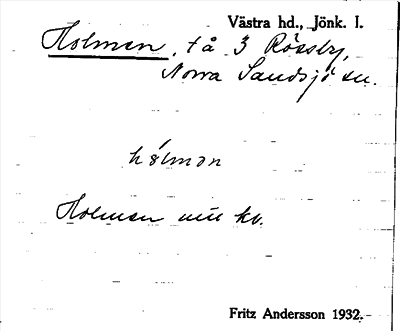 Västra hd., Jönk. l.
Holmen, tå 3 Rössby,
Norra Sandsjö sn.
hólmən
Holmen kv.
Fritz Andersson 1932.